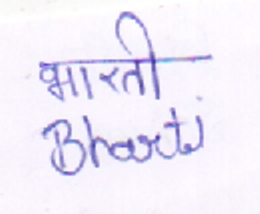 भारती
Bharti